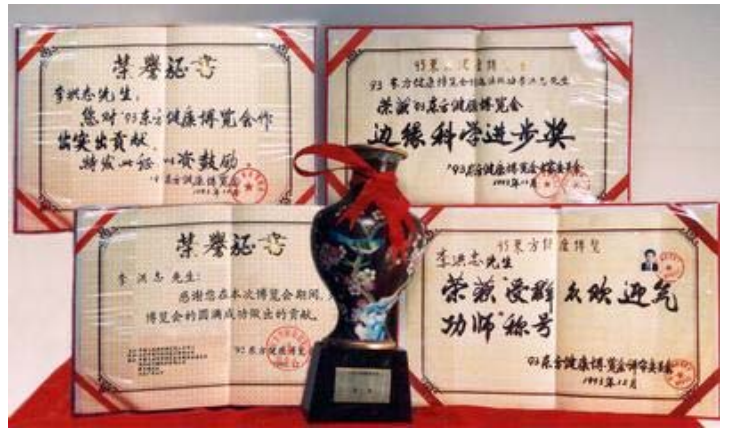 荣誉证书
李洪志先生,
您对'93东方健康博览会作
出突出贡献,
特发此证以资鼓励。
'93东方健康博览会
1993年12月
93东方健康博览
荣获93东方健康博览会
边缘科学进步奖
'93东方健康博览会
1993年12月
荣誉证书
李洪志先生:
感谢您在本次博览会期间,
博览会的圆满成功做出的贡献。
'92东方健康博览
93东方健康博览
李洪志先生
荣获受群众欢迎气
功师"称号
93东方健康博览会评审委员会
1993年12月